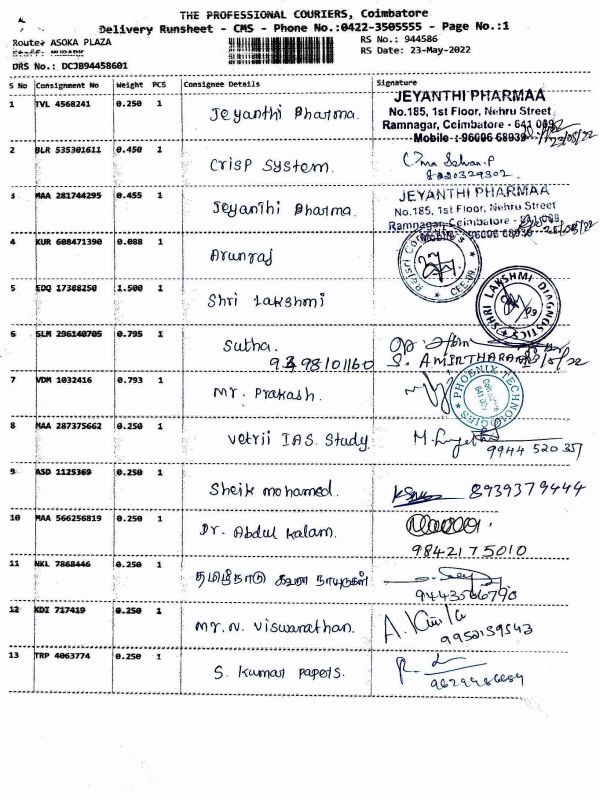 THE PROFESSIONAL COURIERS, Coimbatore
Delivery Runsheet - CMS - Phone No.:0422-3505555 - Page No.:1
Route: ASOKA PLAZA RS No.: 944586
Staff: MUBARK RS Date: 23-May-2022
DRS No.: DCJB94458601
S No Consignment No Weight PCS Consignee Details Signature
1 TVL 4568241 0.250 1 Jeyanthi Pharma. JEYANTHI PHARMAA
No.185, 1st Floor, Nehru Street
Ramnagar, Coimbatore - 641 009
Mobile : 96006 68939
23/05/22
2 BLR 535301611 0.450 1 Crisp System.
3 MAA 281744295 0.455 1 Jeyanthi Pharma. JEYANTHI PHARMAA
No.185, 1st Floor, Nehru Street
Ramnagar, Coimbatore - 641 009
Mobile : 96006 68939
4 KUR 608471390 0.088 1 Arunraj
5 EDQ 17388250 1.500 1 Shri Lakshmi SHRI LAKSHMI DIAGNOSTICS
6 SLM 296140705 0.795 1 Sutha.
S. AMIRTHARAJ
7 VDM 1032416 0.793 1 Mr. Prakash. PHOENIX TECHNOLOGIES
8 MAA 287375662 0.250 1 Vetrii IAS. Study
9944 52035
9 ASD 1125369 0.250 1 Sheik mohamed. 8939379444
10 MAA 566256819 0.250 1 Dr. Abdul Kalam.
9842175010
11 NKL 7868446 0.250 1 தமிழ்நாடு
12 KDI 717419 0.250 1 Mr. N. Viswanathan.
9952159543
13 TRP 4063774 0.250 1 S. Kumar papers.